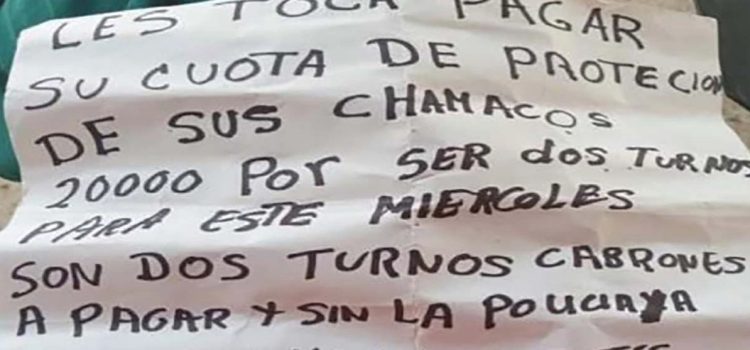 LES TOCA PAGAR
SU CUOTA DE PROTECION
DE SUS CHAMACOS
20000 POR SER dos TURNOS
PARA ESTE MIERCOLES
SON DOS TURNOS CABRONES
A PAGAR Y SIN LA